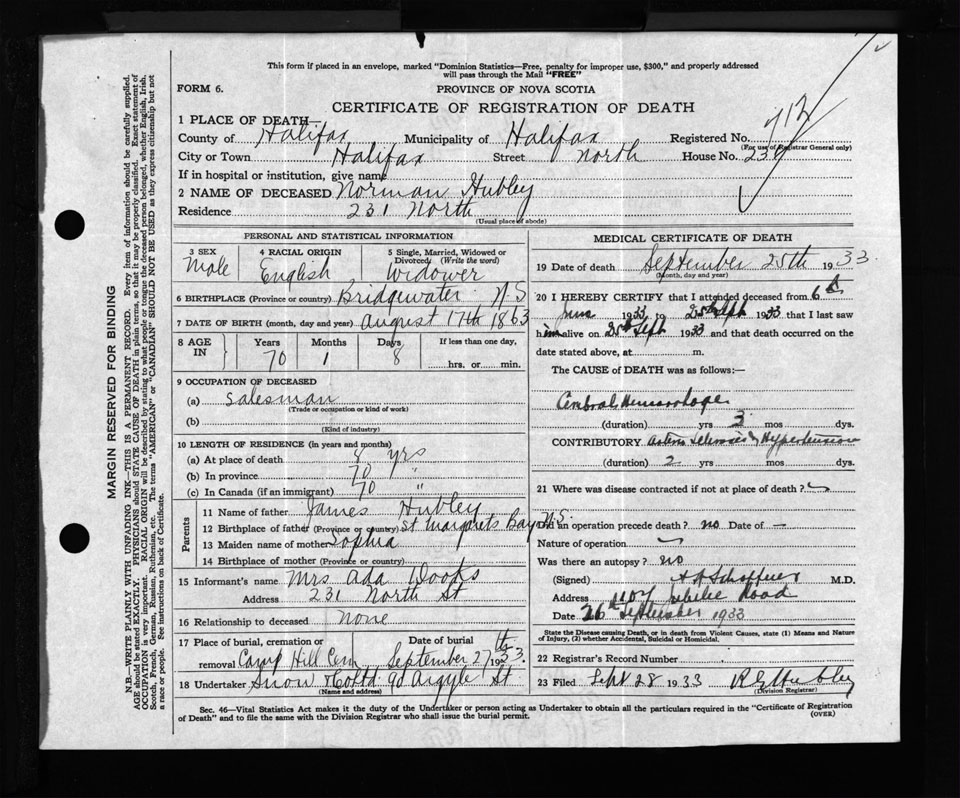 This form if placed in an envelope, marked "Dominion Statistics—Free, penalty for improper use, $300," and properly addressed
will pass through the Mail "FREE"
FORM 6.
PROVINCE OF NOVA SCOTIA
CERTIFICATE OF REGISTRATION OF DEATH
1 PLACE OF DEATH
County of Halifax Municipality of Halifax Registered No.
(For use of Registrar General only)
City or Town Halifax Street North House No. 231
If in hospital or institution, give name
2 NAME OF DECEASED Norman Hubley
Residence 231 North
(Usual place of abode)
MARGIN RESERVED FOR BINDING
N.B.—WRITE PLAINLY WITH UNFADING INK—THIS IS A PERMANENT RECORD. Every item of information should be carefully supplied.
AGE should be stated EXACTLY. PHYSICIANS should STATE CAUSE OF DEATH in plain terms, so that it may be properly classified. Exact statement of
OCCUPATION is very important. RACIAL ORIGIN will be described by stating to what people or tongue the deceased person belonged, whether English, Irish,
Scotch, French, German, Russian, Ruthenian, etc. The terms "AMERICAN" or "CANADIAN" SHOULD NOT BE USED as they express citizenship but not
a race or people. See instructions on back of Certificate.
PERSONAL AND STATISTICAL INFORMATION
3 SEX
Male
4 RACIAL ORIGIN
English
5 Single, Married, Widowed or
Divorced (Write the word)
Widower
6 BIRTHPLACE (Province or country) Bridgewater N.S
7 DATE OF BIRTH (month, day and year) August 17th 1863
8 AGE
IN
Years Months Days If less than one day,
70 1 8 hrs. or min.
9 OCCUPATION OF DECEASED
(a) Salesman
(Trade or occupation or kind of work)
(b)
(Kind of industry)
10 LENGTH OF RESIDENCE (in years and months)
(a) At place of death 8 yrs
(b) In province 70 "
(c) In Canada (if an immigrant) 70 "
Parents
11 Name of father James Hubley
12 Birthplace of father (Province or country) St Margarets Bay N.S.
13 Maiden name of mother Sophia
14 Birthplace of mother (Province or country)
15 Informant's name Mrs Ada Woods
Address 231 North St
16 Relationship to deceased None
17 Place of burial, cremation or Date of burial
removal Camp Hill Cem September 27th 1933.
18 Undertaker Snow & Co Ltd 90 Argyle St
(Name and address)
MEDICAL CERTIFICATE OF DEATH
19 Date of death September 25th 1933.
(Month, day and year)
20 I HEREBY CERTIFY that I attended deceased from 6th
June 1933 to 25th Sept 1933 that I last saw
him alive on 25th Sept 1933 and that death occurred on the
date stated above, at m.
The CAUSE of DEATH was as follows:—
Cerebral Hemorrhage
(duration) yrs 3 mos dys.
CONTRIBUTORY Arterio Sclerosis & Hypertension
(duration) 2 yrs mos dys.
21 Where was disease contracted if not at place of death?
Did an operation precede death? no Date of —
Nature of operation
Was there an autopsy? no
(Signed) M.D.
Address Jubilee Road
Date 26th September 1933
State the Disease causing Death, or in death from Violent Causes, state (1) Means and Nature
of Injury, (2) whether Accidental, Suicidal or Homicidal.
22 Registrar's Record Number
23 Filed Sept 28 1933 Hubley
(Division Registrar)
Sec. 46—Vital Statistics Act makes it the duty of the Undertaker or person acting as Undertaker to obtain all the particulars required in the "Certificate of Registration
of Death" and to file the same with the Division Registrar who shall issue the burial permit.
(OVER)